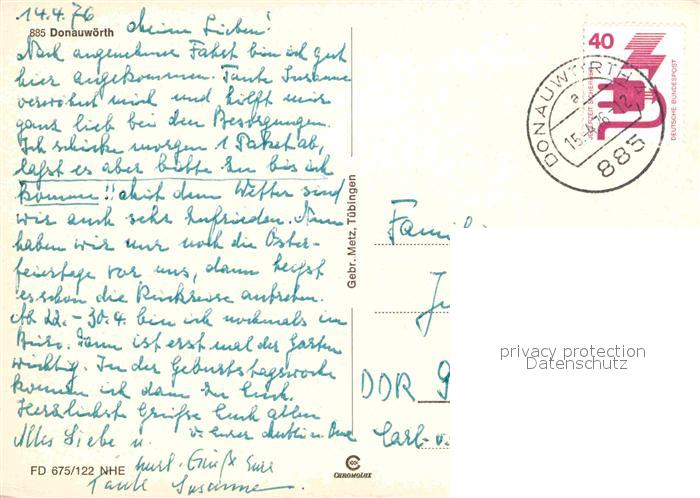 14.4.76
885 Donauwörth
Meine Lieben!
Nach angenehmer Fahrt bin ich gut
hier angekommen. Tante Susanne
verwöhnt mich und hilft mir
ganz lieb bei den Besorgungen.
Ich schicke morgen 1 Paket ab,
laßt es aber bitte zu bis ich
komme!! Mit dem Wetter sind
wir auch sehr zufrieden. Nun
haben wir nur noch die Oster-
feiertage vor uns, dann heißt
es schon die Rückreise antreten.
Ab 22.-30.4. bin ich nochmals im
Büro. Dann ist erst mal der Garten
wichtig. In der Geburtstagswoche
kommen ich dann zu Euch.
Herzlichst Grüße Euch allen
Alles Liebe u. v. Eurer Mutti u. Oma
herzl. Grüße Eure
Tante Susanne.
FD 675/122 NHE
Gebr. Metz, Tübingen
CHROMOLUX
40
JEDERZEIT SICHERHEIT
DEUTSCHE BUNDESPOST
DONAUWÖRTH
a
15.-4.76-12
885
Famil
DDR 9
Carl-v.
privacy protection
Datenschutz